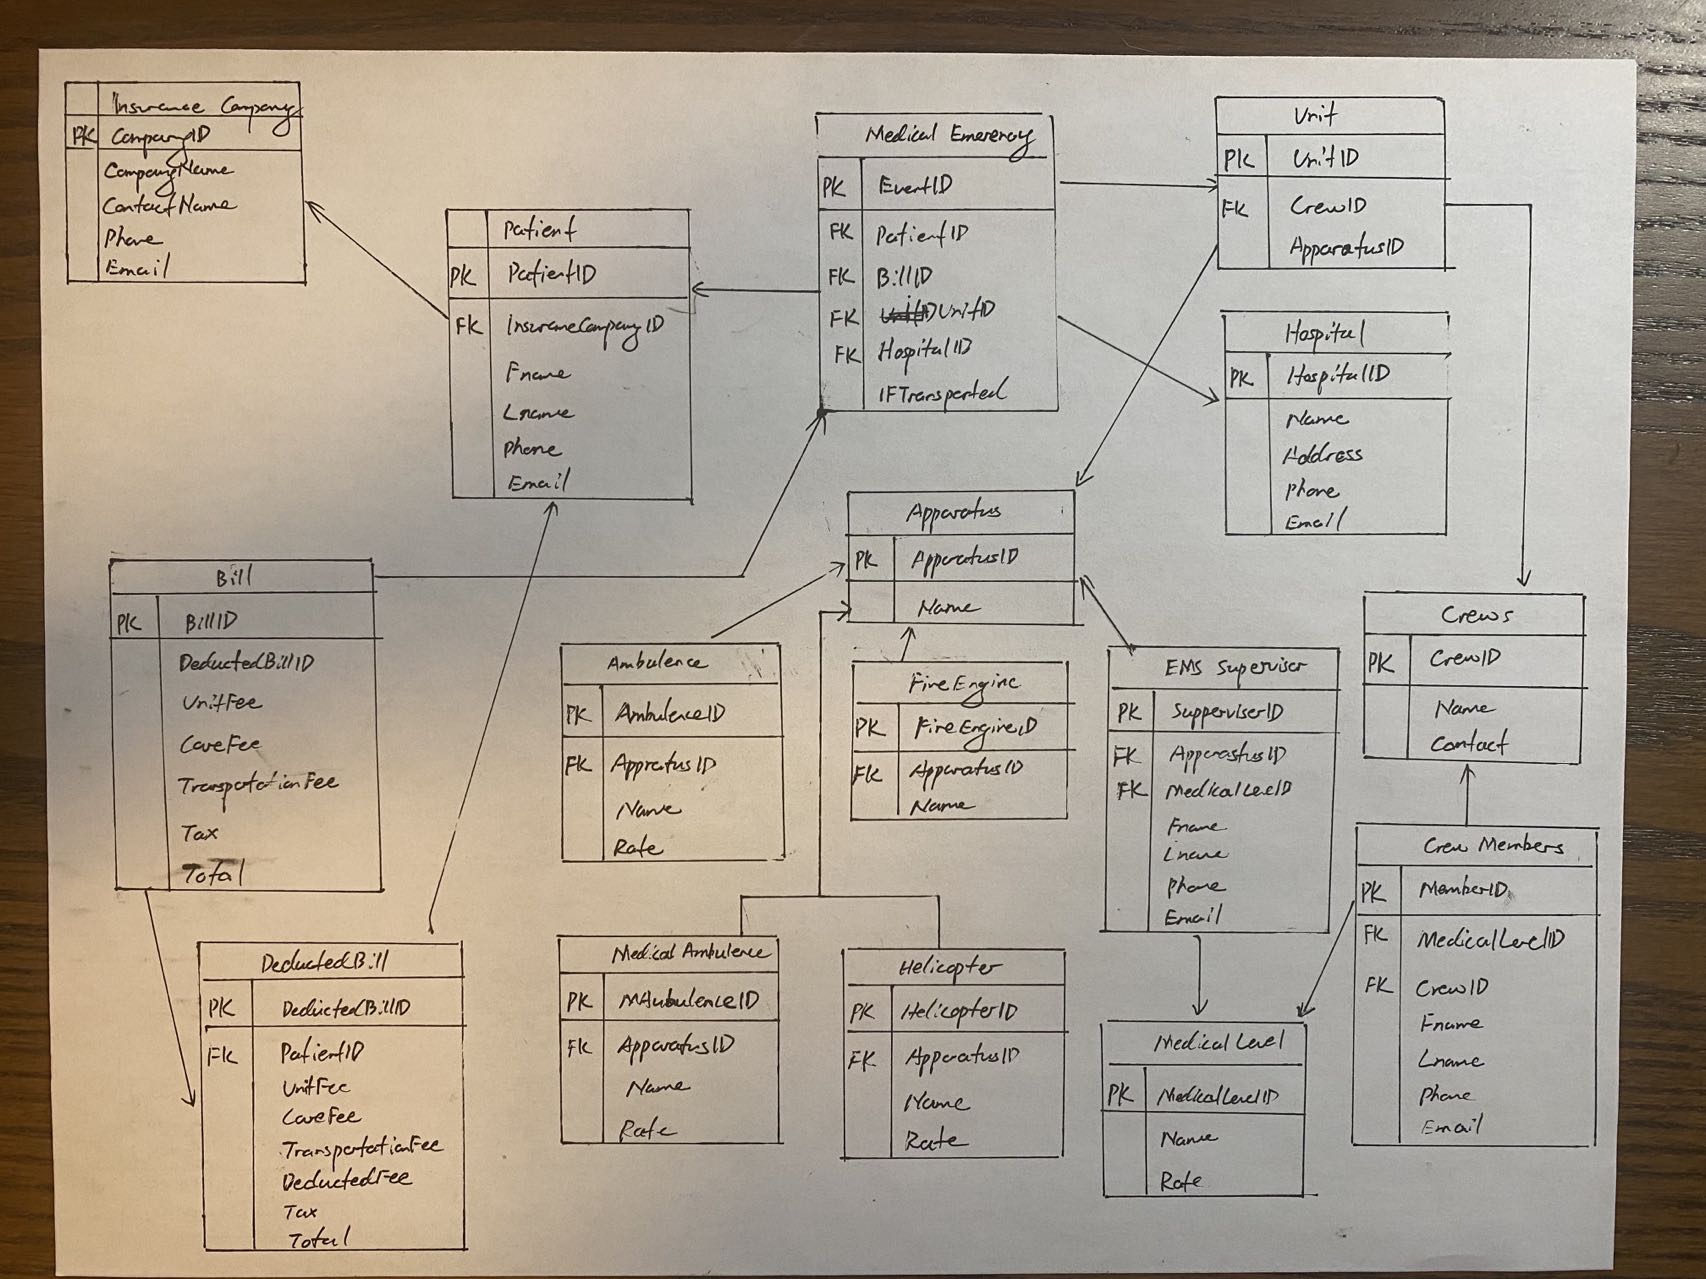 Insurance Company
PK CompanyID
CompanyName
ContactName
Phone
Email
Patient
PK PatientID
FK InsuranceCompanyID
Fname
Lname
Phone
Email
Medical Emerency
PK EventID
FK PatientID
FK BillID
FK UnitID
FK HospitalID
IFTransported
Unit
PK UnitID
FK CrewID
ApparatusID
Hospital
PK HospitalID
Name
Address
Phone
Email
Bill
PK BillID
DeductedBillID
UnitFee
CareFee
TransportationFee
Tax
Total
Apparatus
PK ApparatusID
Name
Ambulence
PK AmbulenceID
FK AppratusID
Name
Rate
Fire Engine
PK FireEngineID
FK ApparatusID
Name
EMS Superviser
PK SupperviserID
FK ApparastusID
FK MedicalLevelID
Fname
Lname
Phone
Email
Crews
PK CrewID
Name
Contact
Crew Members
PK MemberID
FK MedicalLevelID
FK CrewID
Fname
Lname
Phone
Email
DeductedBill
PK DeductedBillID
FK PatientID
UnitFee
CareFee
TransportationFee
DeductedFee
Tax
Total
Medical Ambulence
PK MAmbulenceID
FK ApparatusID
Name
Rate
Helicopter
PK HelicopterID
FK ApparatusID
Name
Rate
Medical Level
PK MedicalLevelID
Name
Rate